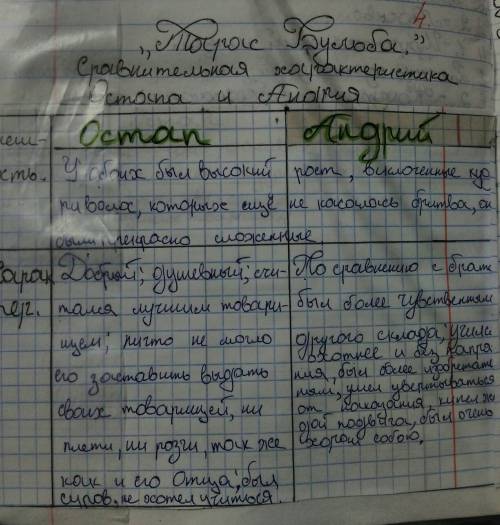 4
„Тарас Бульба."
Сравнительная характеристика
Остапа и Андрия
Остап
Андрий
неш-
ость.
У обоих был высокий рост, всклоченные
волос, которых ещё не касалось бритва, он
были прекрасно сложенные
Харак
тер.
Добрый; душевный; счи-
тался лучшим товари-
щем; ничто не могло
его заставить выдать
своих товарищей, ни
плети, ни розги, так же
как и его отца; был
суров. не хотел учиться.
По сравнению с брат
был более чувственным
другого склада; училс
охотнее и без напря
ния, был более изобретате
ным; умел увертываться
от наказания, кипел ж
дой подвига, был очень
хорош собою.